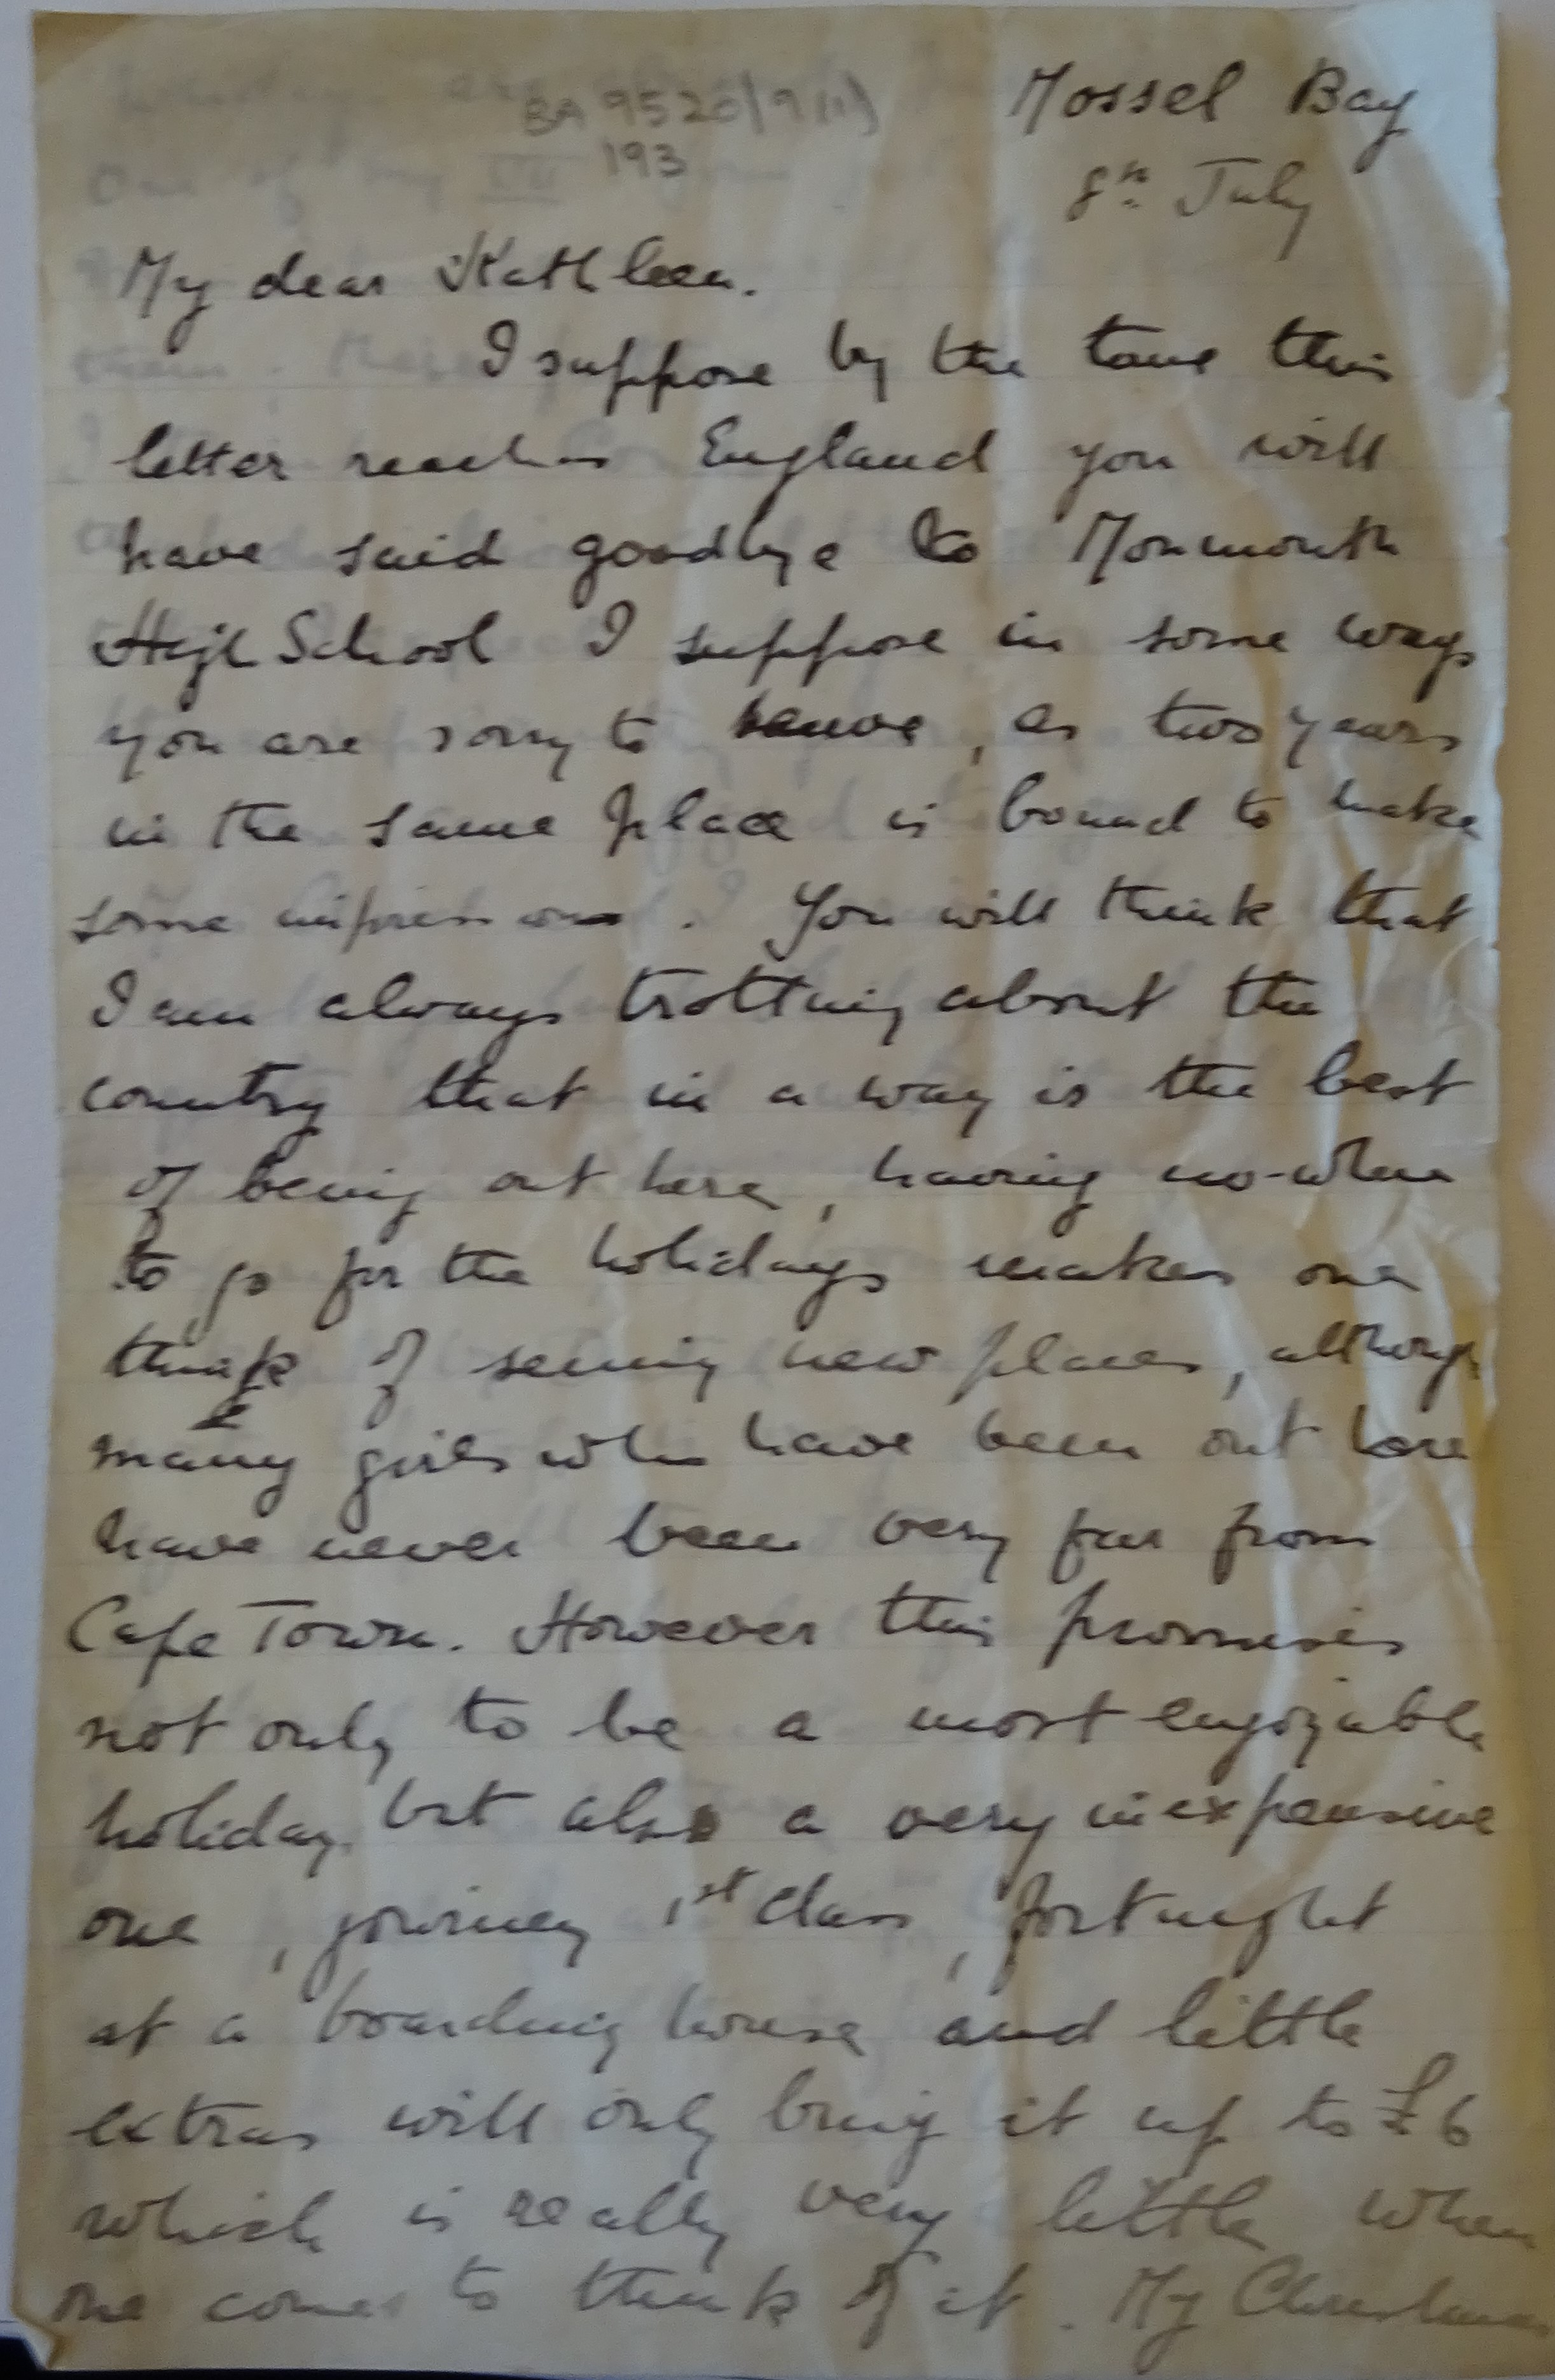 BA 9526/9(1)
193
Mossel Bay
8th. July
My dear Kathleen.
I suppose by the time this
letter reaches England you will
have said goodbye to Monmouth
High School I suppose in some ways
you are sorry to leave, as two years
in the same place is bound to make
some impression. You will think that
I am always trotting about the
country that in a way is the best
of being out here, having no-where
to go for the holidays makes one
think of seeing new places, although
many girls who have been out here
have never been very far from
Cape Town. However this promises
not only to be a most enjoyable
holiday. but also a very inexpensive
one, journey 1st class, fortnight
at a boarding house and little
extras will only bring it up to £6
which is really very little when
one comes to think of it. My Christmas